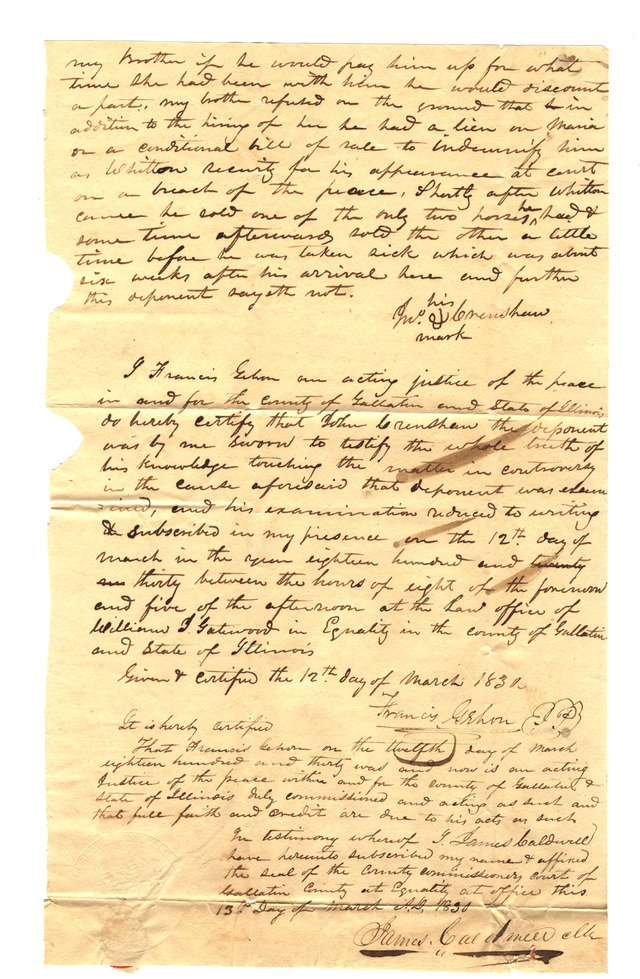 my Brother if he would pay him up for what
time she had been with him he would discount
a part, my brother refused on the ground that in
addition to the hiring of her he had a lien on Maria
on a conditional bill of sale to indemnify him
as Whitton security for his appearance at court
on a breach of the peace, Shortly after Whitton
came he sold one of the only two horses he had &
some time afterwards sold the other a little
time before he was taken sick which was about
six weeks after his arrival here and further
this deponent sayeth not.
his
Jno. Crenshaw
mark
I Francis Gehon an acting justice of the peace
in and for the county of Gallatin and State of Illinois
do hereby certify that John Crenshaw the deponent
was by me sworn to testify the whole truth of
his knowledge touching the matter in controversy
in the cause aforesaid that deponent was exam
ined, and his examination reduced to writing
& subscribed in my presence on the 12th day of
march in the year eighteen hundred and twenty
thirty between the hours of eight of the forenoon
and five of the afternoon at the law office of
William J. Gatewood in Equality in the county of Gallatin
and State of Illinois
Given & certified the 12th day of March 1830
Francis Gehon J.P.
It is hereby certified
That Francis Gehon on the twelfth day of March
eighteen hundred and thirty was and now is an acting
Justice of the peace within and for the county of Gallatin &
State of Illinois duly commissioned and acting as such and
that full faith and credit are due to his acts as such
In testimony whereof I James Caldwell
have hereunto subscribed my name & affixed
the seal of the County commissioners court of
Gallatin County at Equality at office this
13th Day of March A.D. 1830
James Caldwell Clk